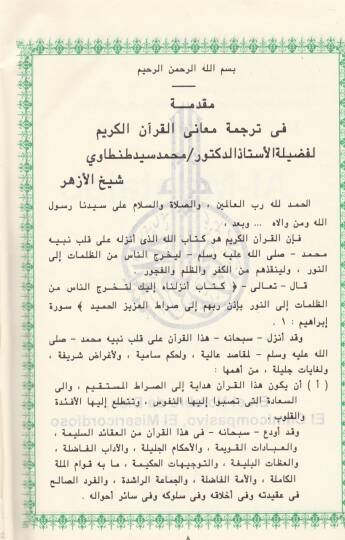 بسم الله الرحمن الرحيم
مقدمـــة
فى ترجمة معانى القرآن الكريم
لفضيلة الأستاذ الدكتور/ محمد سيد طنطاوي
شيخ الأزهر
الحمد لله رب العالمين ، والصلاة والسلام على سيدنا رسول
الله ومن والاه ... وبعد ،
فإن القرآن الكريم هو كتاب الله الذى أنزله على قلب نبيه
محمد – صلى الله عليه وسلم – ليخرج الناس من الظلمات إلى
النور ، ولينقذهم من الكفر والظلم والفجور .
قال – تعالى – ﴿ كتاب أنزلناه إليك لتخرج الناس من
الظلمات إلى النور بإذن ربهم إلى صراط العزيز الحميد ﴾ سورة
إبراهيم : ١ .
وقد أنزل – سبحانه – هذا القرآن على قلب نبيه محمد – صلى
الله عليه وسلم – لمقاصد عالية ، ولحكم سامية ، ولأغراض شريفة ،
ولغايات جليلة ، من أهمها :
( أ ) أن يكون هذا القرآن هداية إلى الصراط المستقيم ، والى
السعادة التى تصبوا إليها النفوس ، وتتطلع إليها الأفئدة
والقلوب .
وقد أودع – سبحانه – فى هذا القرآن من العقائد السليمة ،
والعبادات القويمة ، والأحكام الجليلة ، والآداب الفاضلة ،
والعظات البليغة ، والتوجيهات الحكيمة ، ما به قوام الملة
الكاملة ، والأمة الفاضلة ، والجماعة الراشدة ، والفرد الصالح
فى عقيدته وفى أخلاقه وفى سلوكه وفى سائر أحواله .